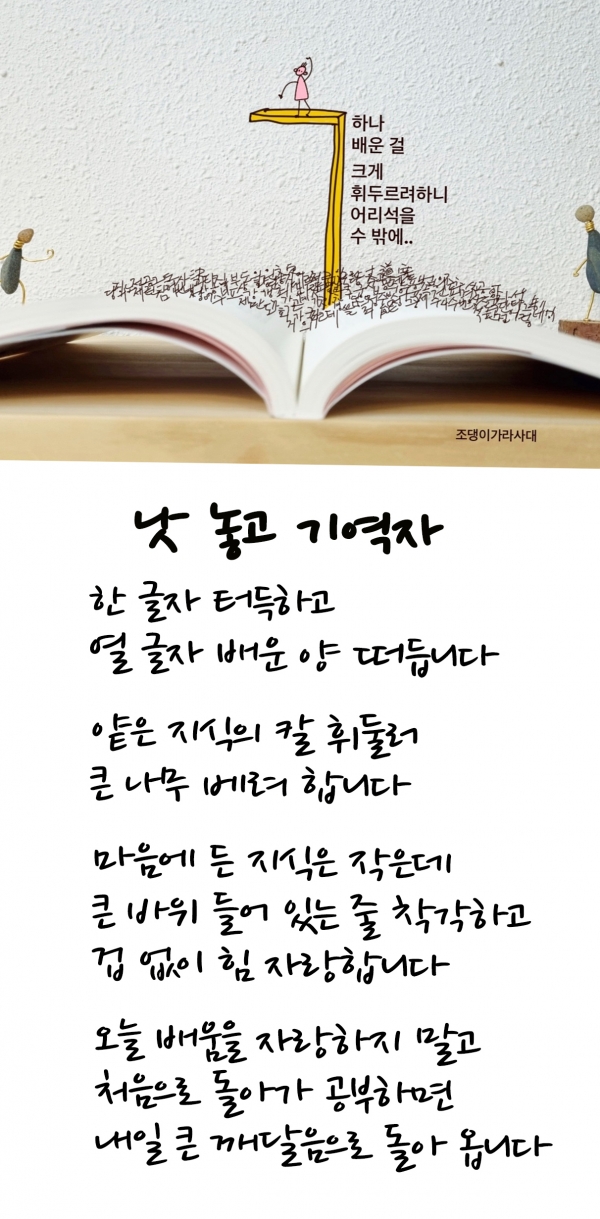 하나
배운 걸
크게
휘두르려하니
어리석을
수 밖에..
조댕이가라사대
낫 놓고 기역자
한 글자 터득하고
열 글자 배운 양 떠듭니다
얕은 지식의 칼 휘둘러
큰 나무 베려 합니다
마음에 든 지식은 작은데
큰 바위 들어 있는 줄 착각하고
겁 없이 힘 자랑합니다
오늘 배움을 자랑하지 말고
처음으로 돌아가 공부하면
내일 큰 깨달음으로 돌아 옵니다